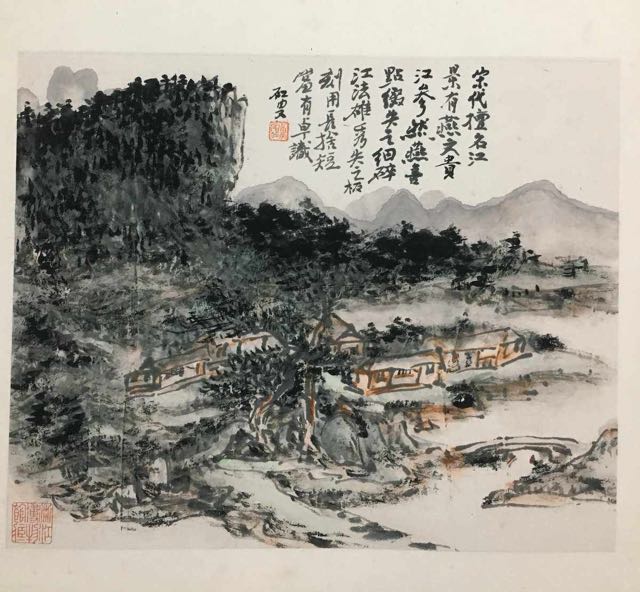 宋代擅名江
景有燕文貴
江參然燕喜
點綴失之細碎
江法雄秀失之板
刻用長捨短
當有卓識
虹叟